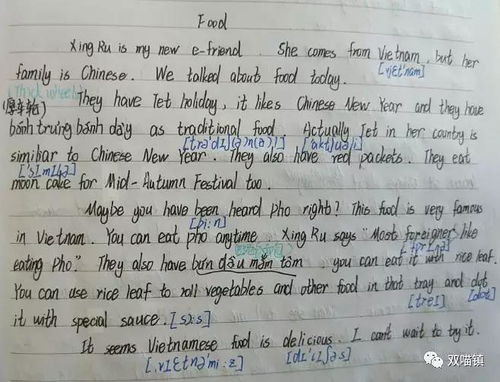 Food
Xing Ru is my new e-friend. She comes from Vietnam, but her
[vjɛt'nam]
family is Chinese. We talked about food today.
They have Tet holiday, it likes Chinese New Year and they have
bánh trưng bánh dày as traditional food. Actually Tet in her country is
similiar to Chinese New Year. They also have red packets. They eat
moon cake for Mid-Autumn Festival too.
Maybe you have been heard pho right? This food is very famous
[bi:n]
in Vietnam. You can eat pho anytime. Xing Ru says "Most foreigner like
eating Pho." They also have bún đậu mắm tôm you can eat it with rice leaf.
You can use rice leaf to roll vegetables and other food in that tray and dip
[treɪ]
it with special sauce. [sɔ:s]
It seems Vietnamese food is delicious. I can't wait to try it.
[ˌvɪɛtnə'mi:z] [dɪ'lɪʃəs]
双喵镇